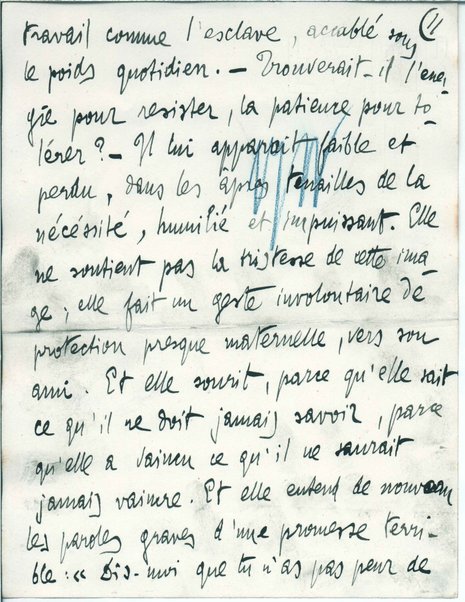 11
travail comme l'esclave, accablé sous
le poids quotidien. — Trouverait-il l'éner-
gie pour resister, la patience pour to-
lérer? — Il lui apparait faible et
perdu, dans les âpres tenailles de la
nécéssité, humilié et impuissant. Elle
ne soutient pas la tristesse de cette ima-
ge; elle fait un geste involontaire de
protection presque maternelle, vers son
ami. Et elle sourit, parce qu'elle sait
ce qu'il ne doit jamais savoir, parce
qu'elle a vaincu ce qu'il ne saurait
jamais vaincre. Et elle entend de nouveau
les paroles graves d'une promesse terri-
ble: « Dis-moi que tu n'as pas peur de